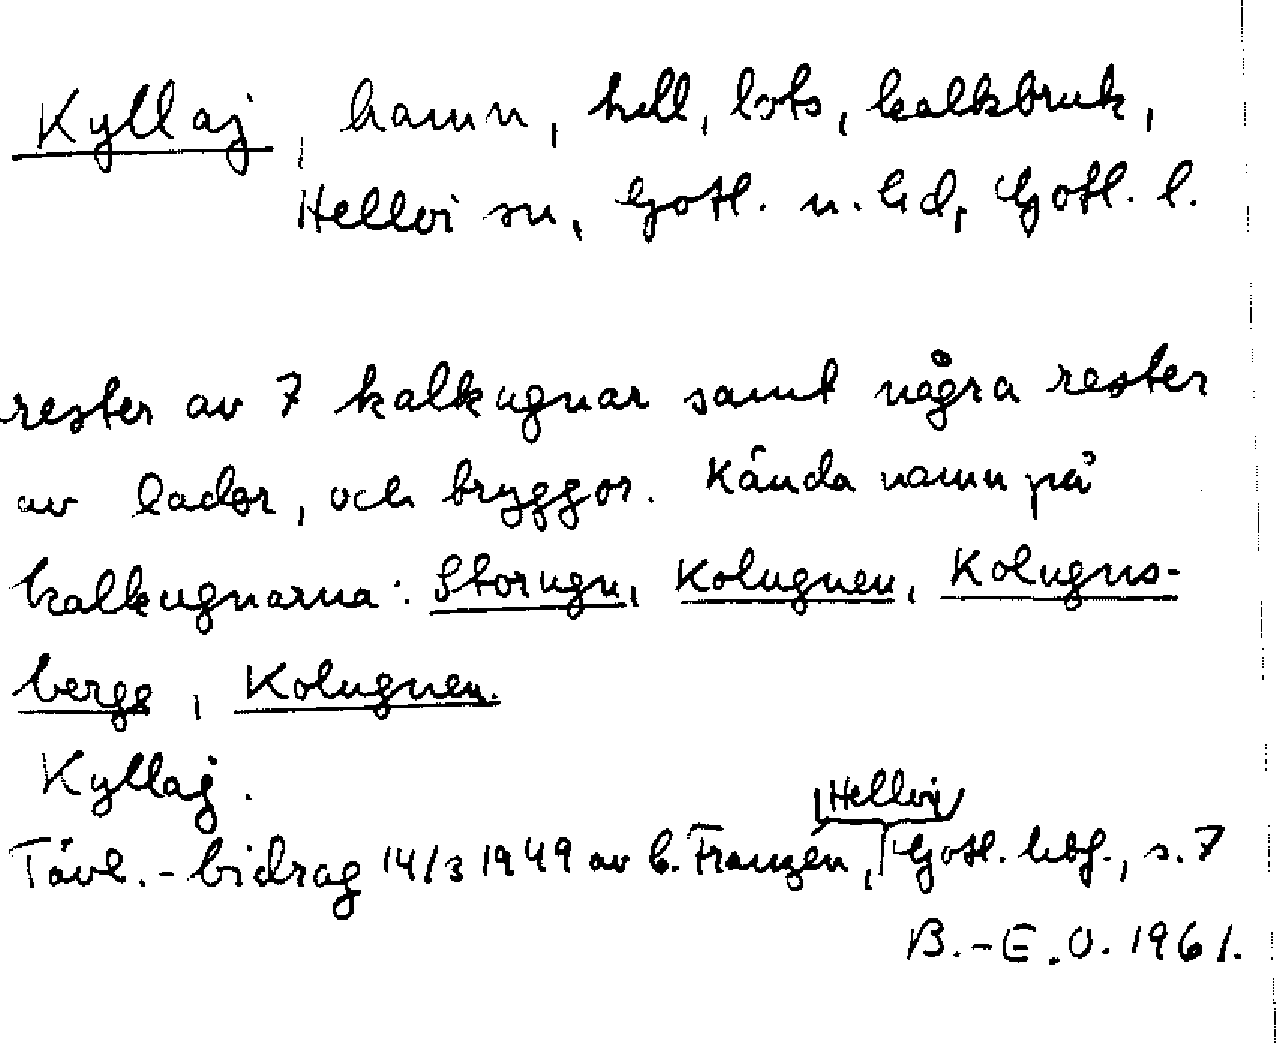 Kyllaj, hamn, håll, lots, kalkbruk,
Hellvi sn, Gotl. n. hd, Gotl. l.
rester av 7 kalkugnar samt några rester
av lador, och bryggor. Kända namn på
kalkugnarna: Storugn, Kolugnen, Kolugns-
berge, Kolugnen.
Kyllaj.
Hellvi
Tävl.-bidrag 14/3 1949 av G. Franzén, Gotl. hbf., s. 7
B.-E. O. 1961.